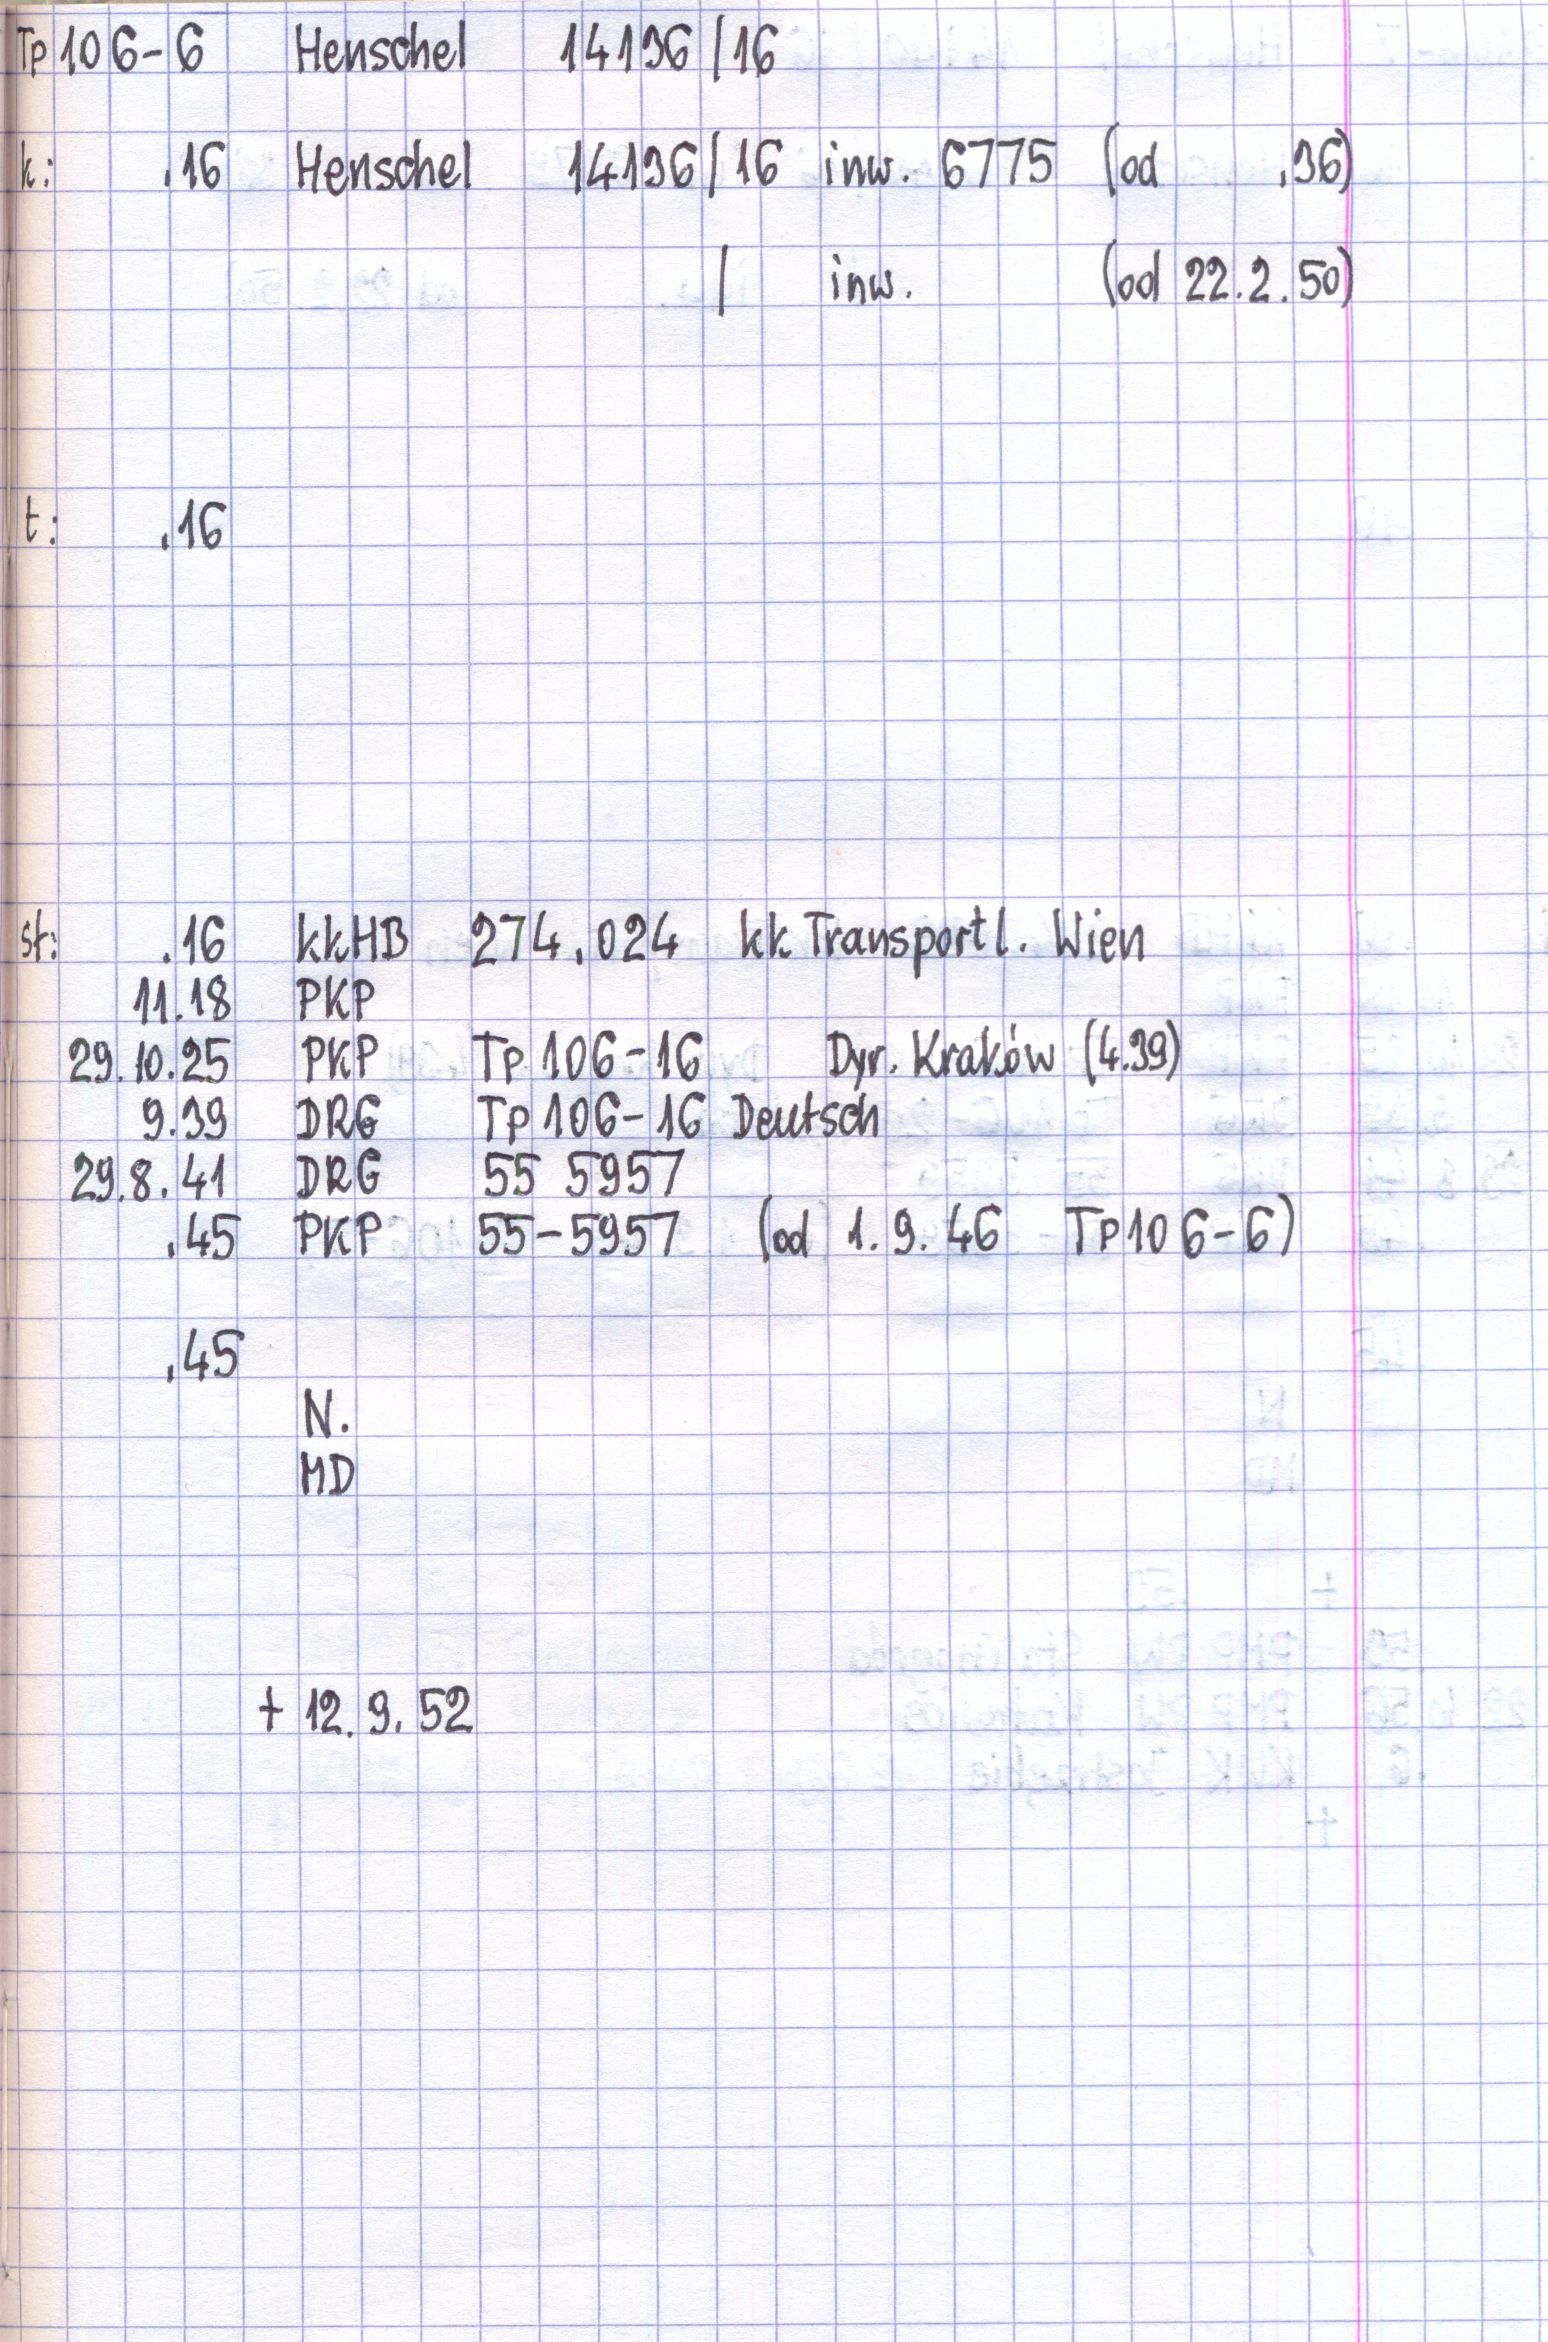 Tp 106-6 Henschel 14196/16
k: .16 Henschel 14196/16 inw. 6775 (od .36)
/ inw. (od 22.2.50)
t: .16
st: .16 kkHB 274.024 kk Transportl. Wien
11.18 PKP
29.10.25 PKP Tp 106-16 Dyr. Kraków (4.39)
9.39 DRG Tp 106-16 Deutsch
29.8.41 DRG 55 5957
.45 PKP 55-5957 (od 1.9.46 Tp 106-6)
.45
N.
MD
+ 12.9.52